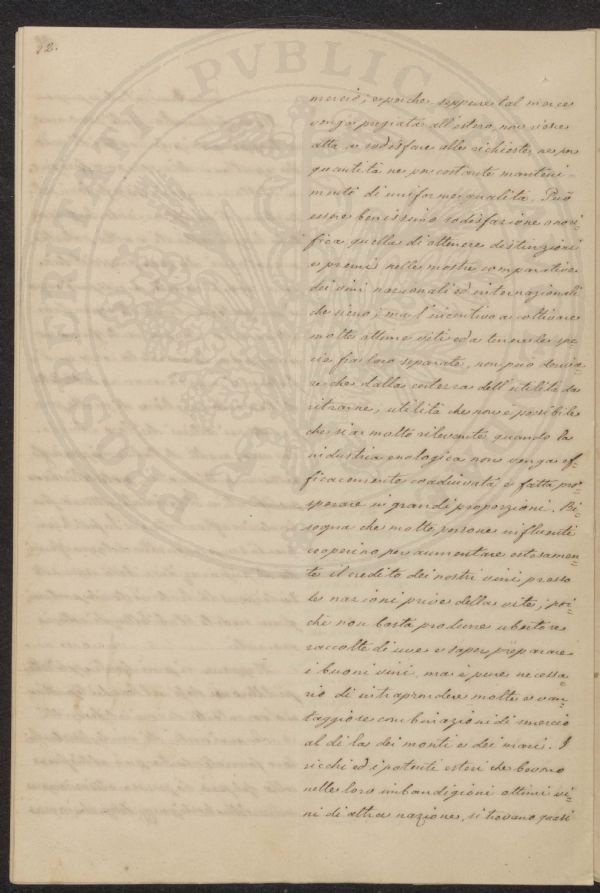 12.
PROSPERITATI PVBLICÆ
mercio; e poiche seppure tal merce
venga pregiata all'estero, non riesce
atta a sodisfare alle richieste, ne per
quantità ne per costante manteni-
mento di uniforme qualità. Può
essere benissimo sodisfazione onori-
fica quella di ottenere distinzioni
e premi nelle mostre comparative
dei vini nazionali ed internazionali
che sieno; ma l'incentivo a coltivare
molte ottime viti ed a tenere le spe-
cie fra loro separate, non può deriva-
re che dalla certezza dell'utilità da
ritrarne, utilità che non è possibile
che sia molto rilevante quando la
industria enologica non venga ef-
ficacemente coadiuvata e fatta pro-
sperare in grandi proporzioni. Bi-
sogna che molte persone influenti
cooperino per aumentare estesamen-
te il credito dei nostri vini presso
le nazioni prive della vite; poi-
chè non basta produrre ubertose
raccolte di uve e saper preparare
i buoni vini, ma è pure necessa-
rio di intraprendere molte e van-
taggiose combinazioni di smercio
al di la dei monti e dei mari. I
ricchi ed i potenti esteri che bevono
nelle loro imbandigioni ottimi vi-
ni di altra nazione, si trovano quasi